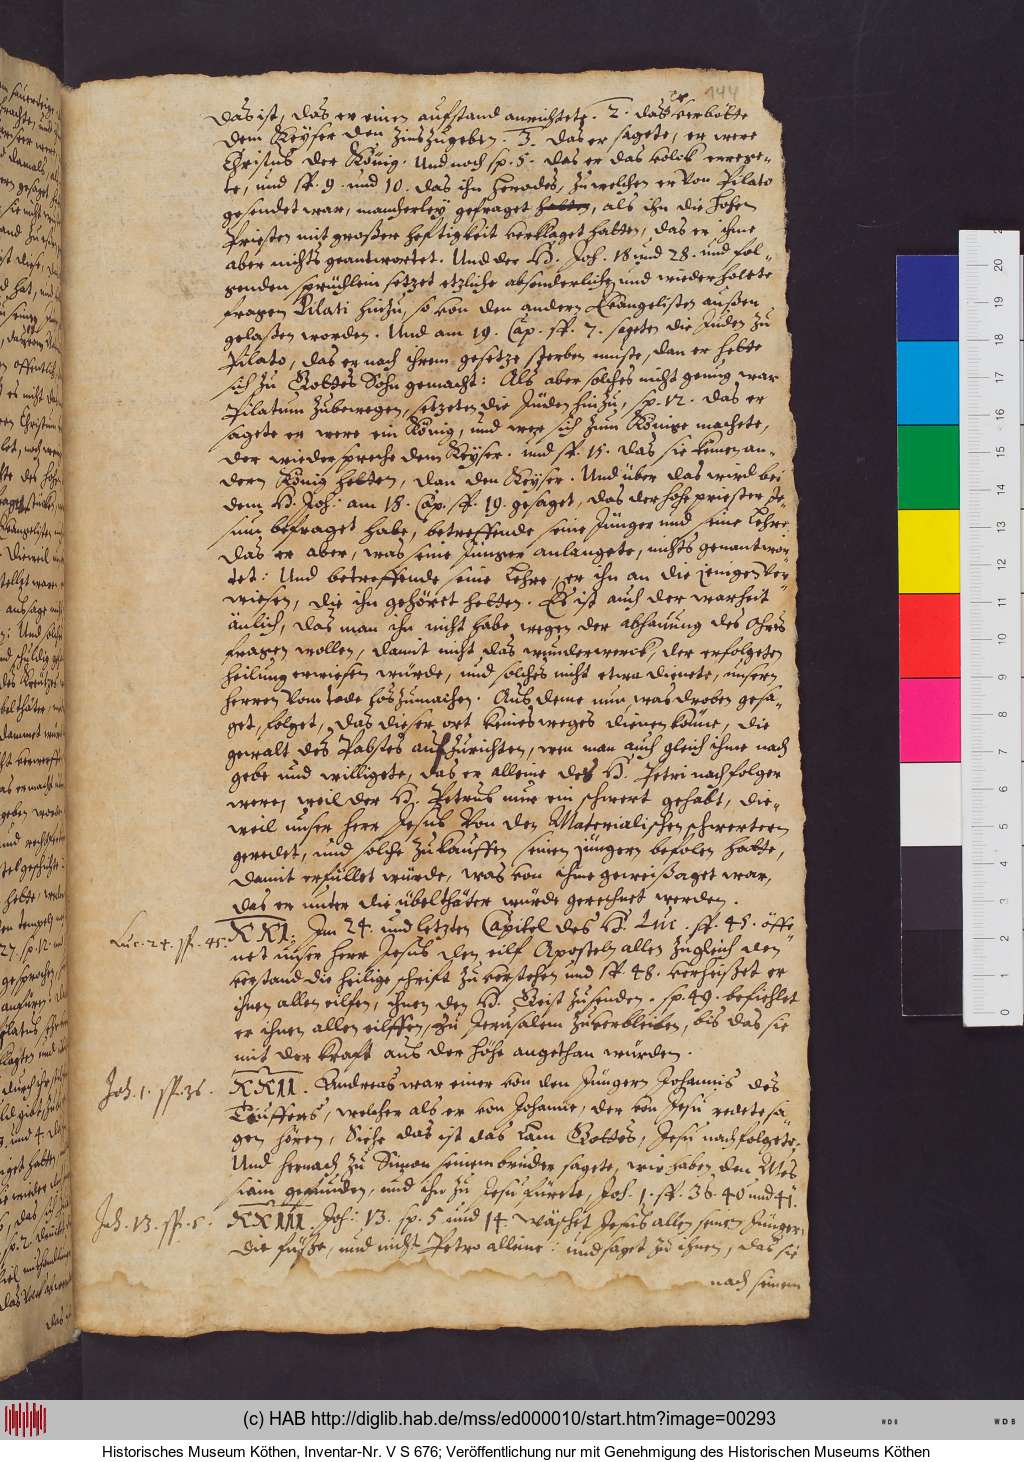 144
das ist, das er einen aufstand anrichtete. 2. das er verböte
dem Keyser den zinszugeben. 3. das er sagete, er were
Christus der König. Und noch sp. 5. das er das volck errege-
te, und sp. 9. und 10. das ihn Herodes, zu welchen er von Pilato
gesendet war, mancherley gefraget hatte, als ihn die Hohen
Priester mit großer heftigkeit verklaget hatten, das er ihme
aber nichts geantwortet. Und der H. Joh. 18 und 28. und fol-
genden sprüchlein setzet etzliche absonderliche und wiederholete
fragen Pilati hinzu, so von den andern Evangelisten außen
gelaßen worden. Und am 19. Cap. sp. 7. sageten die Juden zu
Pilato, das er nach ihrem gesetze sterben muste, dan er hette
sich zu Gottes Sohn gemacht: Als aber solches nicht genug war
Pilatum zubewegen, setzeten die Jüden hinzu, sp. 12. das er
sagete er were ein König, und wer sich zum Könige machete,
der wiederspreche dem Keyser. und sp. 15. das sie keinen an-
dern König hetten, dan den Keyser. Und über das wird bei
dem H. Joh: am 18. Cap. sp. 19. gesaget, das der hohepriester Je-
sum befraget habe, betreffende seine Jünger und seine Lehre
das er aber, was seine Jünger anlangete, nichts geantwor-
tet: Und betreffende seine Lehre, er ihn an die jenigen ver-
wiesen, die ihn gehöret hetten. Es ist auch der warheit
änlich, das man ihn nicht habe wegen der abhauung des Ohres
fragen wollen, damit nicht das wunderwerck, der erfolgeten
heilung erwiesen würde, und solches nicht etwa dienete, unsern
herren vom tode loszumachen. Aus deme nun, was droben gesa-
get, folget, das dieser ort keines weges dienen könne, die
gewalt des Pabstes aufzurichten, wen man auch gleich ihme nach
gebe und willigete, das er alleine des H. Petri nachfolger
were, weil der H. Petrus nur ein schwert gehabt, die-
weil unser herr Jesus von den Materialischen schwertern
geredet, und solche zukauffen seinen jüngern befolen hatte,
damit erfüllet würde, was von ihme geweißaget war,
das er unter die übelthäter würde gerechnet werden.
Luc. 24. sp. 45.
XXI. Im 24. und letzten Capitel des H. Luc. sp. 45. öffe-
net unser herr Jesus den eilf Aposteln allen zugleich den
verstand die heilige schrift zuverstehen und sp. 48. verheißet er
ihnen allen eilfen, ihnen den H. Geist zusenden. sp. 49. befiehlet
er ihnen allen eilffen, zu Jerusalem zuverbleiben, bis das sie
mit der kraft aus der höhe angethan würden.
Joh. 1. sp. 36.
XXII. Andreas war einer von den Jüngern Johannis des
Teuffers, welcher als er von Johanne, der von Jesu redete sa-
gen hören, Siehe das ist das Lam Gottes, Jesu nachfolgete.
Und hernach zu Simon seinem bruder sagete, wir haben den Mes
siam gefunden, und ihn zu Jesu fürete, Joh. 1. sp. 36. 40 und 41.
Joh. 13. sp. 5.
XXIII. Joh: 13. sp. 5 und 14. wäschet Jesus allen seinen Jüngern
die füße, und nicht Petro alleine: und saget zu ihnen, das sie
nach seinem
(c) HAB http://diglib.hab.de/mss/ed000010/start.htm?image=00293
Historisches Museum Köthen, Inventar-Nr. V S 676; Veröffentlichung nur mit Genehmigung des Historischen Museums Köthen